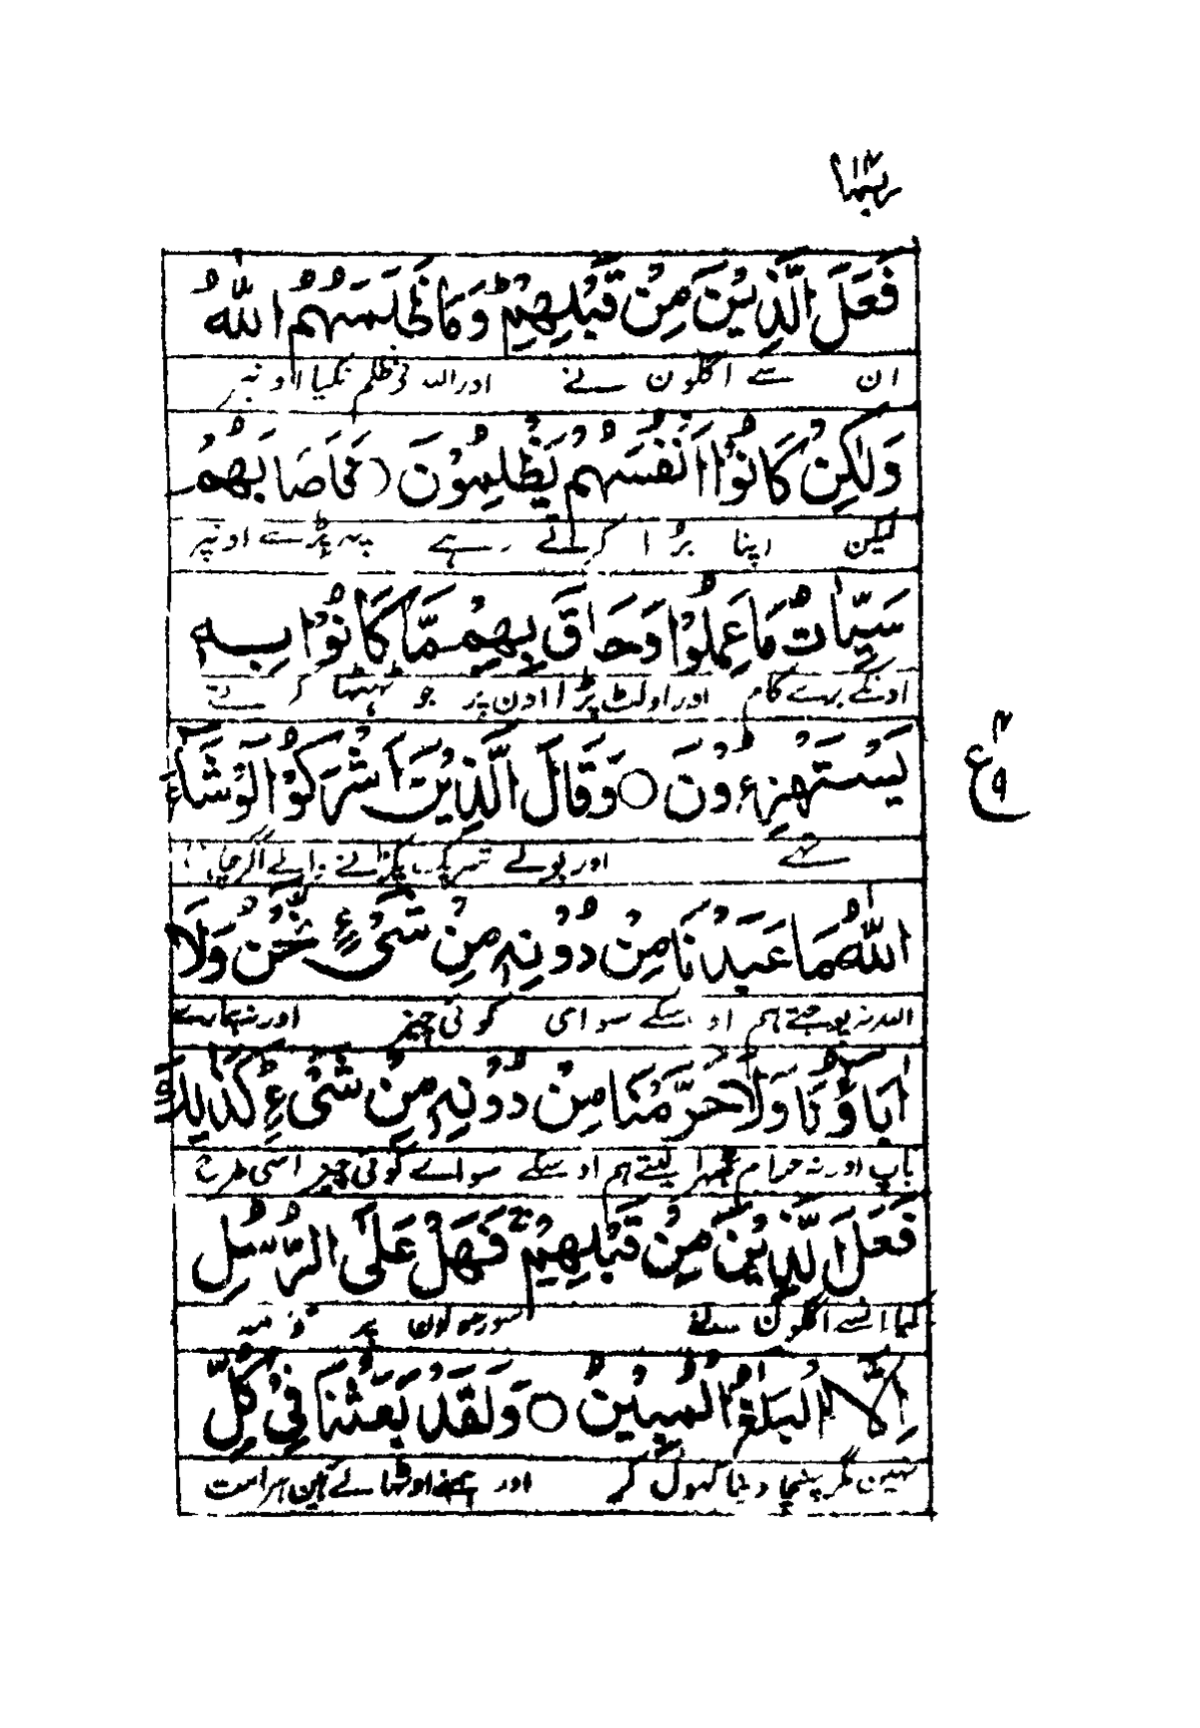 ربما ۱۴
فَعَلَ الَّذِيْنَ مِنْ قَبْلِهِمْ ؕ وَمَا ظَلَمَهُمُ اللّٰهُ
ان سے اگلون نے اور اللہ نے ظلم نکیا اونپر
وَلٰكِنْ كَانُوْا اَنْفُسَهُمْ يَظْلِمُوْنَ ○ فَاَصَابَهُمْ
لیکن اپنا برا کرتے رہے پہر پڑے اونپر
سَيِّاٰتُ مَا عَمِلُوْا وَحَاقَ بِهِمْ مَّا كَانُوْا بِهٖ
اونکے برے کام اور اولٹ پڑا اون پر جو ٹہٹہا کرتے
يَسْتَهْزِءُوْنَ ○ وَقَالَ الَّذِيْنَ اَشْرَكُوْا لَوْ شَآءَ
تہے اور بولے شریک پکڑنے والے اگر چاہتا
۴ ع ۹
اللّٰهُ مَا عَبَدْنَا مِنْ دُوْنِهٖ مِنْ شَىْءٍ نَّحْنُ وَلَا
اللہ نہ پوجتے ہم اوسکے سوای کوئی چیز اور نہ ہمارے
اٰبَآؤُنَا وَلَا حَرَّمْنَا مِنْ دُوْنِهٖ مِنْ شَىْءٍ ؕ كَذٰلِكَ
باپ اور نہ حرام ٹھہرا لیتے ہم اوسکے سواے کوئی چیز اسی طرح
فَعَلَ الَّذِيْنَ مِنْ قَبْلِهِمْ ۚ فَهَلْ عَلَى الرُّسُلِ
کیا انسے اگلون نے سو رسولون پر ذمہ
اِلَّا الْبَلٰغُ الْمُبِيْنُ ○ وَلَقَدْ بَعَثْنَا فِىْ كُلِّ
نہین مگر پہنچا دینا کہول کر اور ہمنے اوٹھائے ہین ہر امت